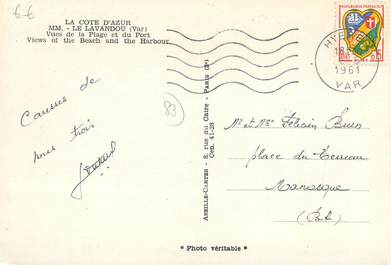 6-€
LA COTE D'AZUR
MM. - LE LAVANDOU (Var)
Vues de la Plage et du Port
Views of the Beach and the Harbour
de
mes trois
83
ABEILLE-CARTES - 8, rue du Caire - PARIS (2e)
Gut. 41-28
HYERES
18
1961
VAR
REPUBLIQUE FRANÇAISE
0,15
Mr et Mme Félicien
place du Terreau
Manosque
(B.A)
* Photo véritable *